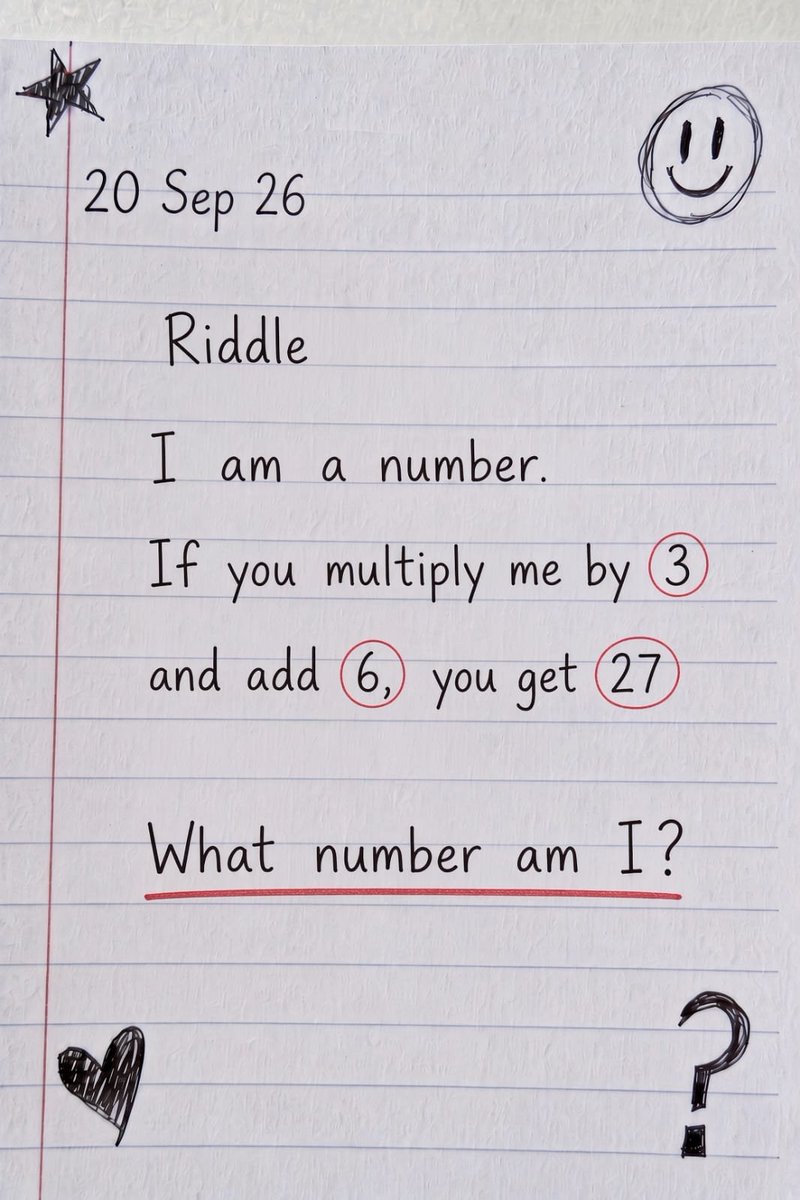 20 Sep 26
Riddle
I am a number.
If you multiply me by 3
and add 6, you get 27
What number am I?
?